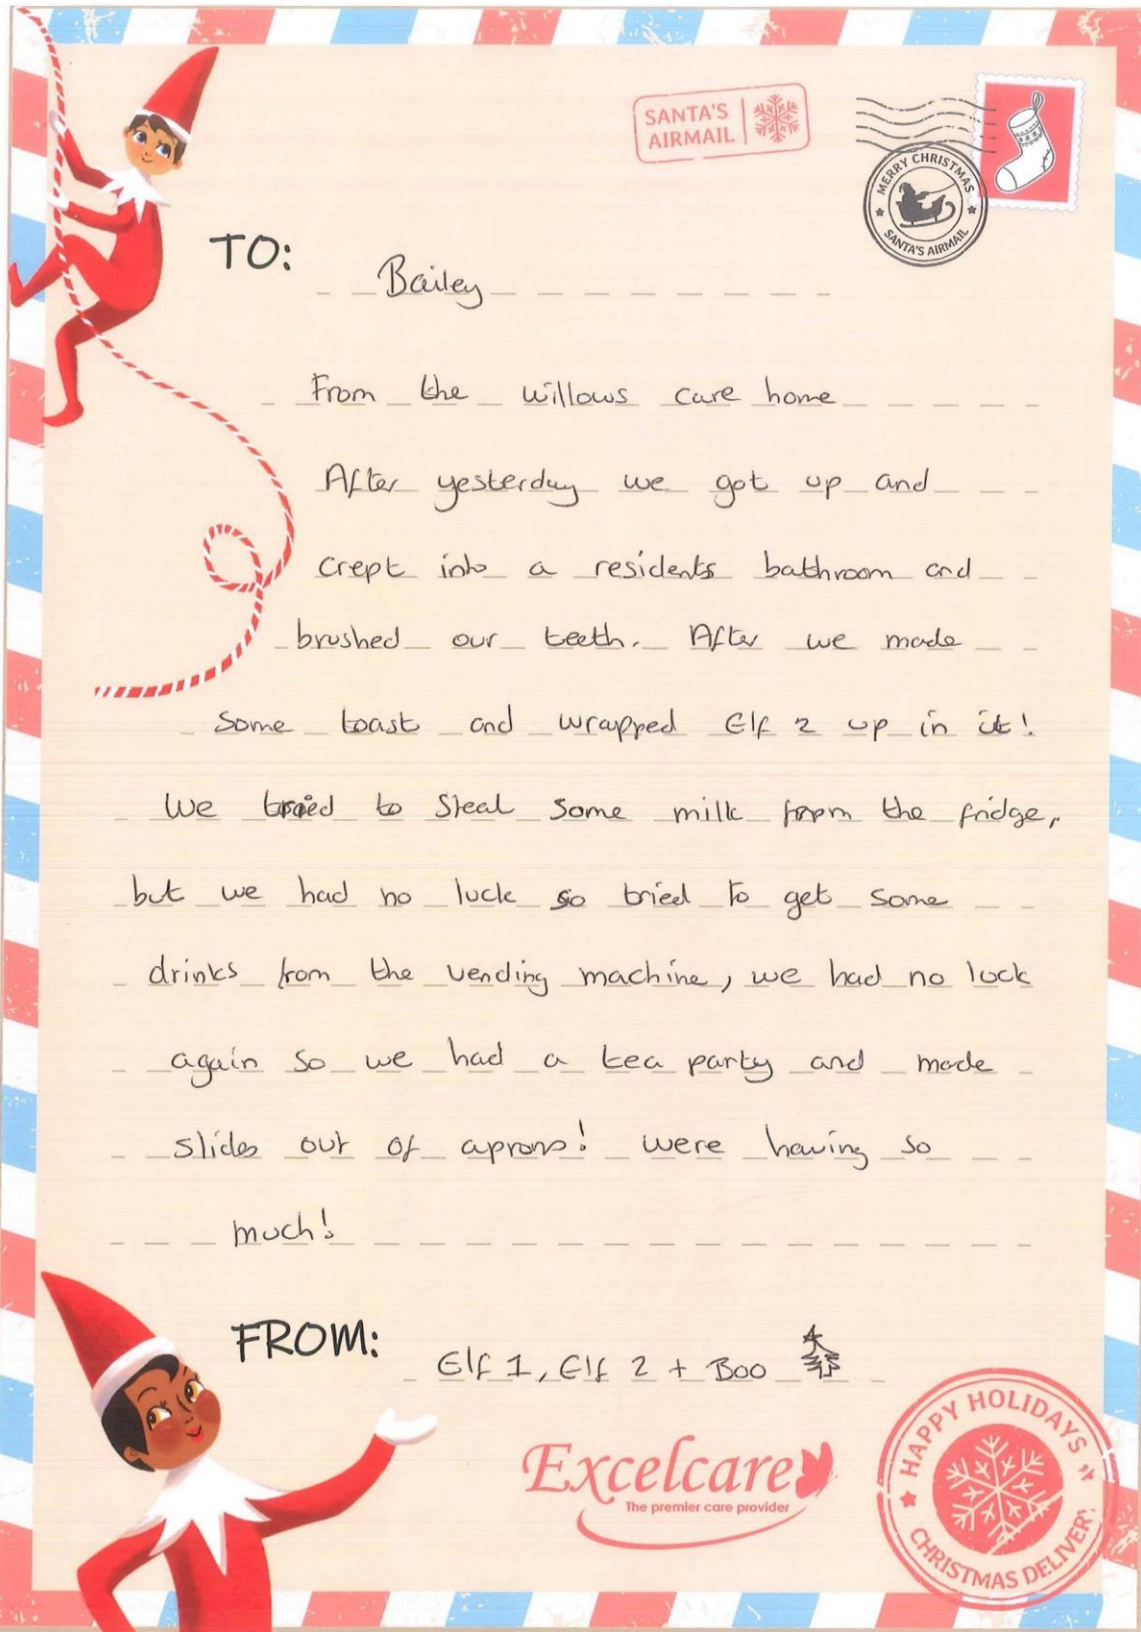 SANTA'S
AIRMAIL
MERRY CHRISTMAS
SANTA'S AIRMAIL
TO:
Bailey
From the willows care home
After yesterday we got up and
crept into a residents bathroom and
brushed our teeth. After we made
some toast and wrapped Elf 2 up in it!
We tried to steal some milk from the fridge,
but we had no luck so tried to get some
drinks from the vending machine, we had no luck
again so we had a tea party and made
slides out of aprons! were having so
much!
FROM:
Elf 1, Elf 2 + Boo
Excelcare
The premier care provider
HAPPY HOLIDAYS
CHRISTMAS DELIVERY